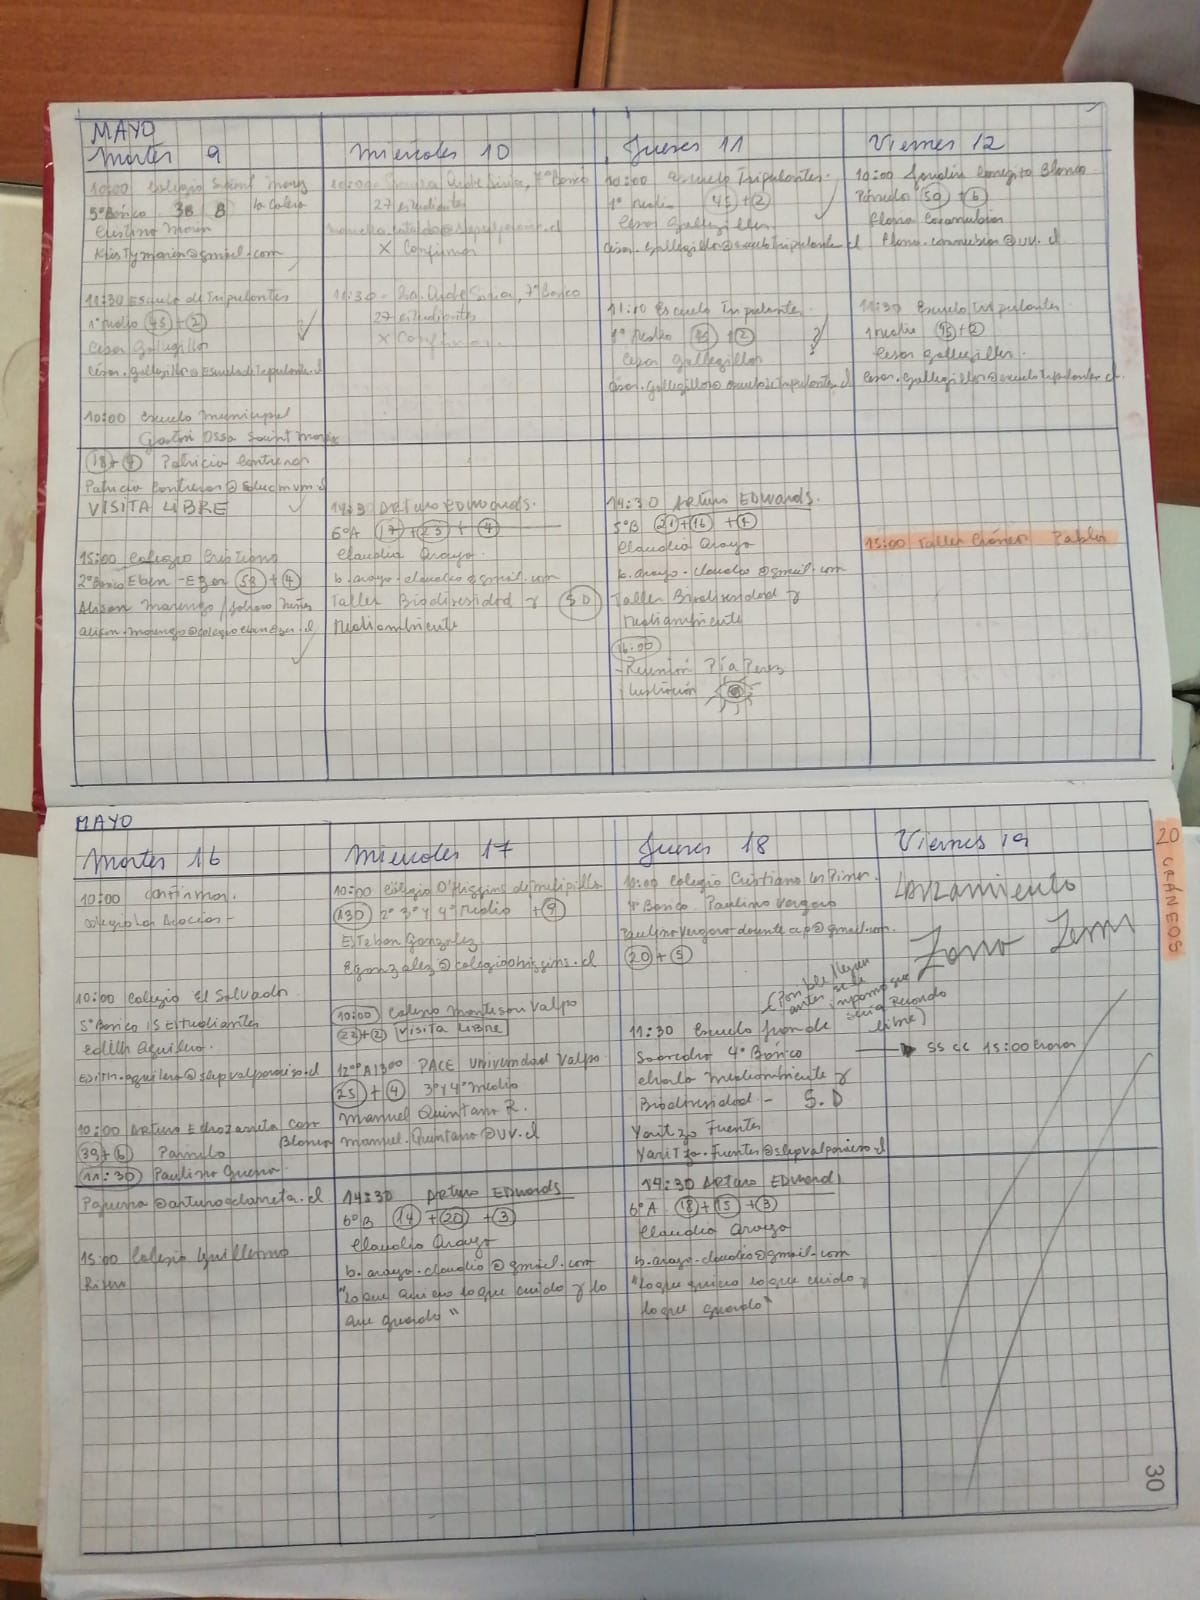 MAYO
Martes 9
10:00 Colegio Saint Mary
5º Básico 38 8 La Calera
Cristina Marin
Kristymarin@gmail.com
11:30 Escuela de Tripulantes
1º Medio 45 + 2
Cesar Gallegillos
Cesar.gallegillos@EscueladeTripulantes.cl
10:00 Escuela Municipal
Gastón Ossa Saint Marie
18+4 Patricia Contreras
VISITA LIBRE
15:00 Colegio Cristiano
2º Básico Eben-Ezer 58 + 4
Alison Marengo /
Miércoles 10
7º Básico
27 estudiantes
X Confirmar
11:30 - 7º Básico
27 estudiantes
X Confirmar.
14:30 ARTURO EDWARDS.
6ºA 17 + 23 + 4
Claudia Araya.
b.araya.claudia@gmail.com
Taller Biodiversidad y SD
Medioambiente
Jueves 11
10:00 Escuela Tripulantes.
1º Medio 45 + 2
Cesar Gallegillos
Cesar.gallegillos@escuelaTripulantes.cl
11:10 Escuela Tripulantes.
1º Medio 45 + 2
Cesar gallegillos
14:30 ARTURO EDWARDS.
5ºB 21 + 16 + 4
Claudia Araya
b.araya.claudia@gmail.com
Taller Biodiversidad y
Medioambiente
16:00
- Reunión Pía Perez
Ilustración
Viernes 12
10:00 Jardín Conejito Blanco
Párvulo 50 + 6
11:30 Escuela Tripulantes
1 Medio 45 + 2
Cesar gallegillos.
Cesar.gallegillos@escuelaTripulantes.cl
15:00 Taller Cráneos Pablo
MAYO
Martes 16
10:00 Confirmar.
Colegio Las Acacias -
10:00 Colegio El Salvador
5º Básico 15 Estudiantes
Edith Aguilera.
Edith.aguilera@slepvalparaiso.cl
10:00 Arturo Casa Blanca
39+6 Párvulo
11:30 Paulina Guerra
15:00 Colegio Guillermo
Miércoles 17
10:00 Colegio O'Higgins de Melipilla
130 2º 3º y 4º Medio + 9
Esteban Gonzalez
Egonzalez@colegioohiggins.cl
10:00 Colegio Montessori Valpo
22+2 VISITA LIBRE
12:00 A 13:00 PACE Universidad Valpo
25 + 4 3º y 4º Medio
Manuel Quintana R.
Manuel.Quintana@uv.cl
14:30 ARTURO EDWARDS
6ºB 14 + 20 + 3
Claudia Araya
b.araya.claudia@gmail.com
"Lo que quiero lo que cuido y lo
que guardo"
Jueves 18
10:00 Colegio Cristiano Los Pinos.
Básico Paulina Vergara
20 + 5
(Posible llegan
antes se le
informo que
sería Recorrido
libre)
11:30 Escuela Juan de
Saavedra 4º Básico
charla Medioambiente y
Biodiversidad - S.D
Yaritza Fuentes
Yaritza.Fuentes@slepvalparaiso.cl
14:30 ARTURO EDWARDS
6ºA 18 + 15 + 3
Claudia Araya
b.araya.claudia@gmail.com
"Lo que quiero lo que cuido y
lo que guardo"
Viernes 19
Lanzamiento
SS CC 15:00
20 CRÁNEOS
30